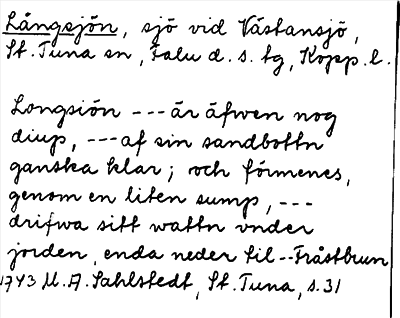 Långsjön, sjö vid Västansjö,
St. Tuna sn, Falu d. s. tg, Kopp. l.
Longsiön --- är äfwen nog
diup, --- af sin sandbottn
ganska klar; och förmenes,
genom en liten sump, ---
drifwa sitt wattn vnder
jorden, enda neder til -- Fråstbrun
1743 U. A. Sahlstedt, St. Tuna, s. 31